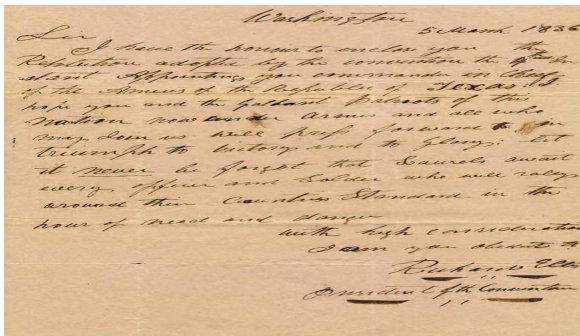 Washington
5 March 1836
Sir
I have the honour to enclose you the
Resolution adopted by the convention the 4th In
stant Appointing you commander in Cheif
of the Armies of the Republic of Texas: I
hope you and the Gallant Patriots of this
nation now under armes and all who
may Join us will press forward
triumph to Victory and to Glory; let
it never be forgot that Laurels await
every officer and Solder who will rally
around their Countries Standard in the
hour of need and danger
with high consideration
I am your obedient
Richard Ellis
President of the Convention